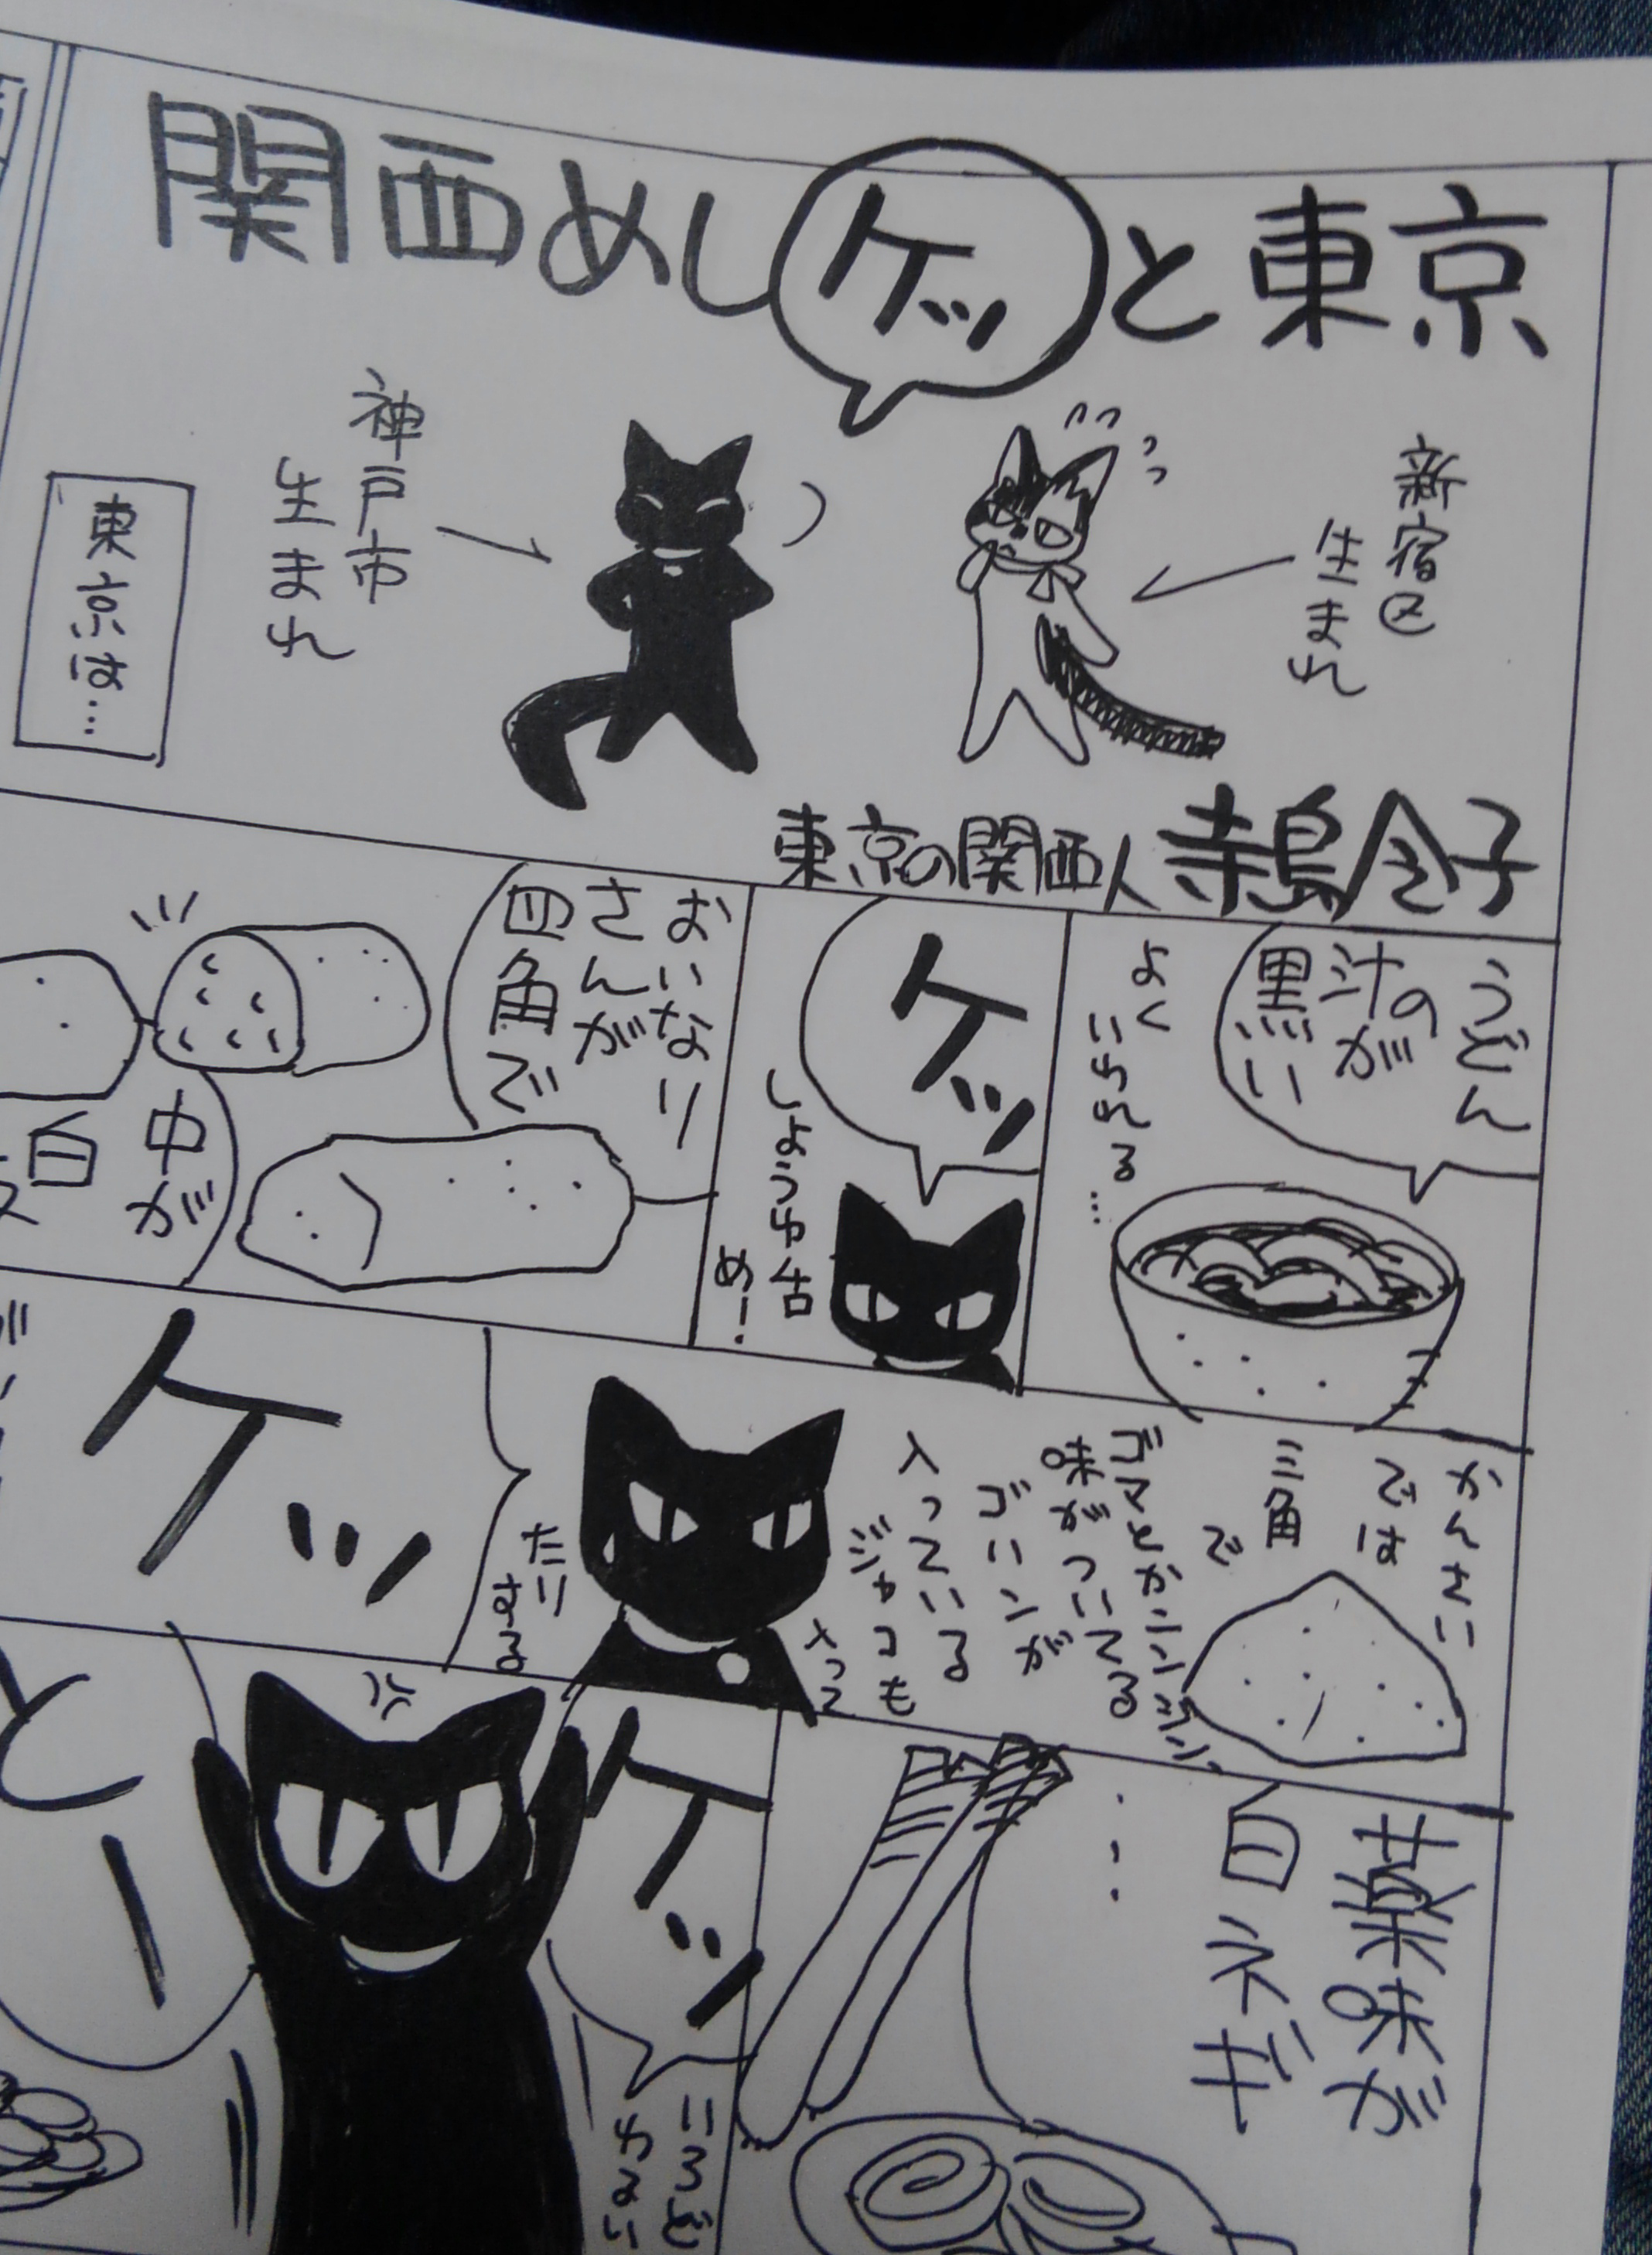 関西めしケッと東京
新宿区
生まれ
神戸市
生まれ
東京は…
東京の関西人 寺島令子
うどん
汁のが
黒い
よく
いわれる…
ケッ
しょうゆ舌
め!
おいなり
さんが
四角で
中が
白
かんさい
では
三角
で
味がついてる
ゴボウが
入っている
ジャコも
入って
たり
する
ケッ
薬味が
白ネギ
…
ケッ
いろど
わるい
とー